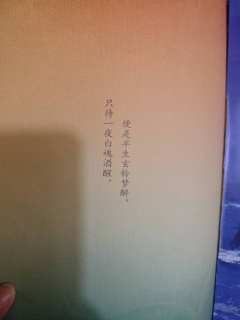 便是平生玄铃梦醉，
只待一夜白魂酒醒。